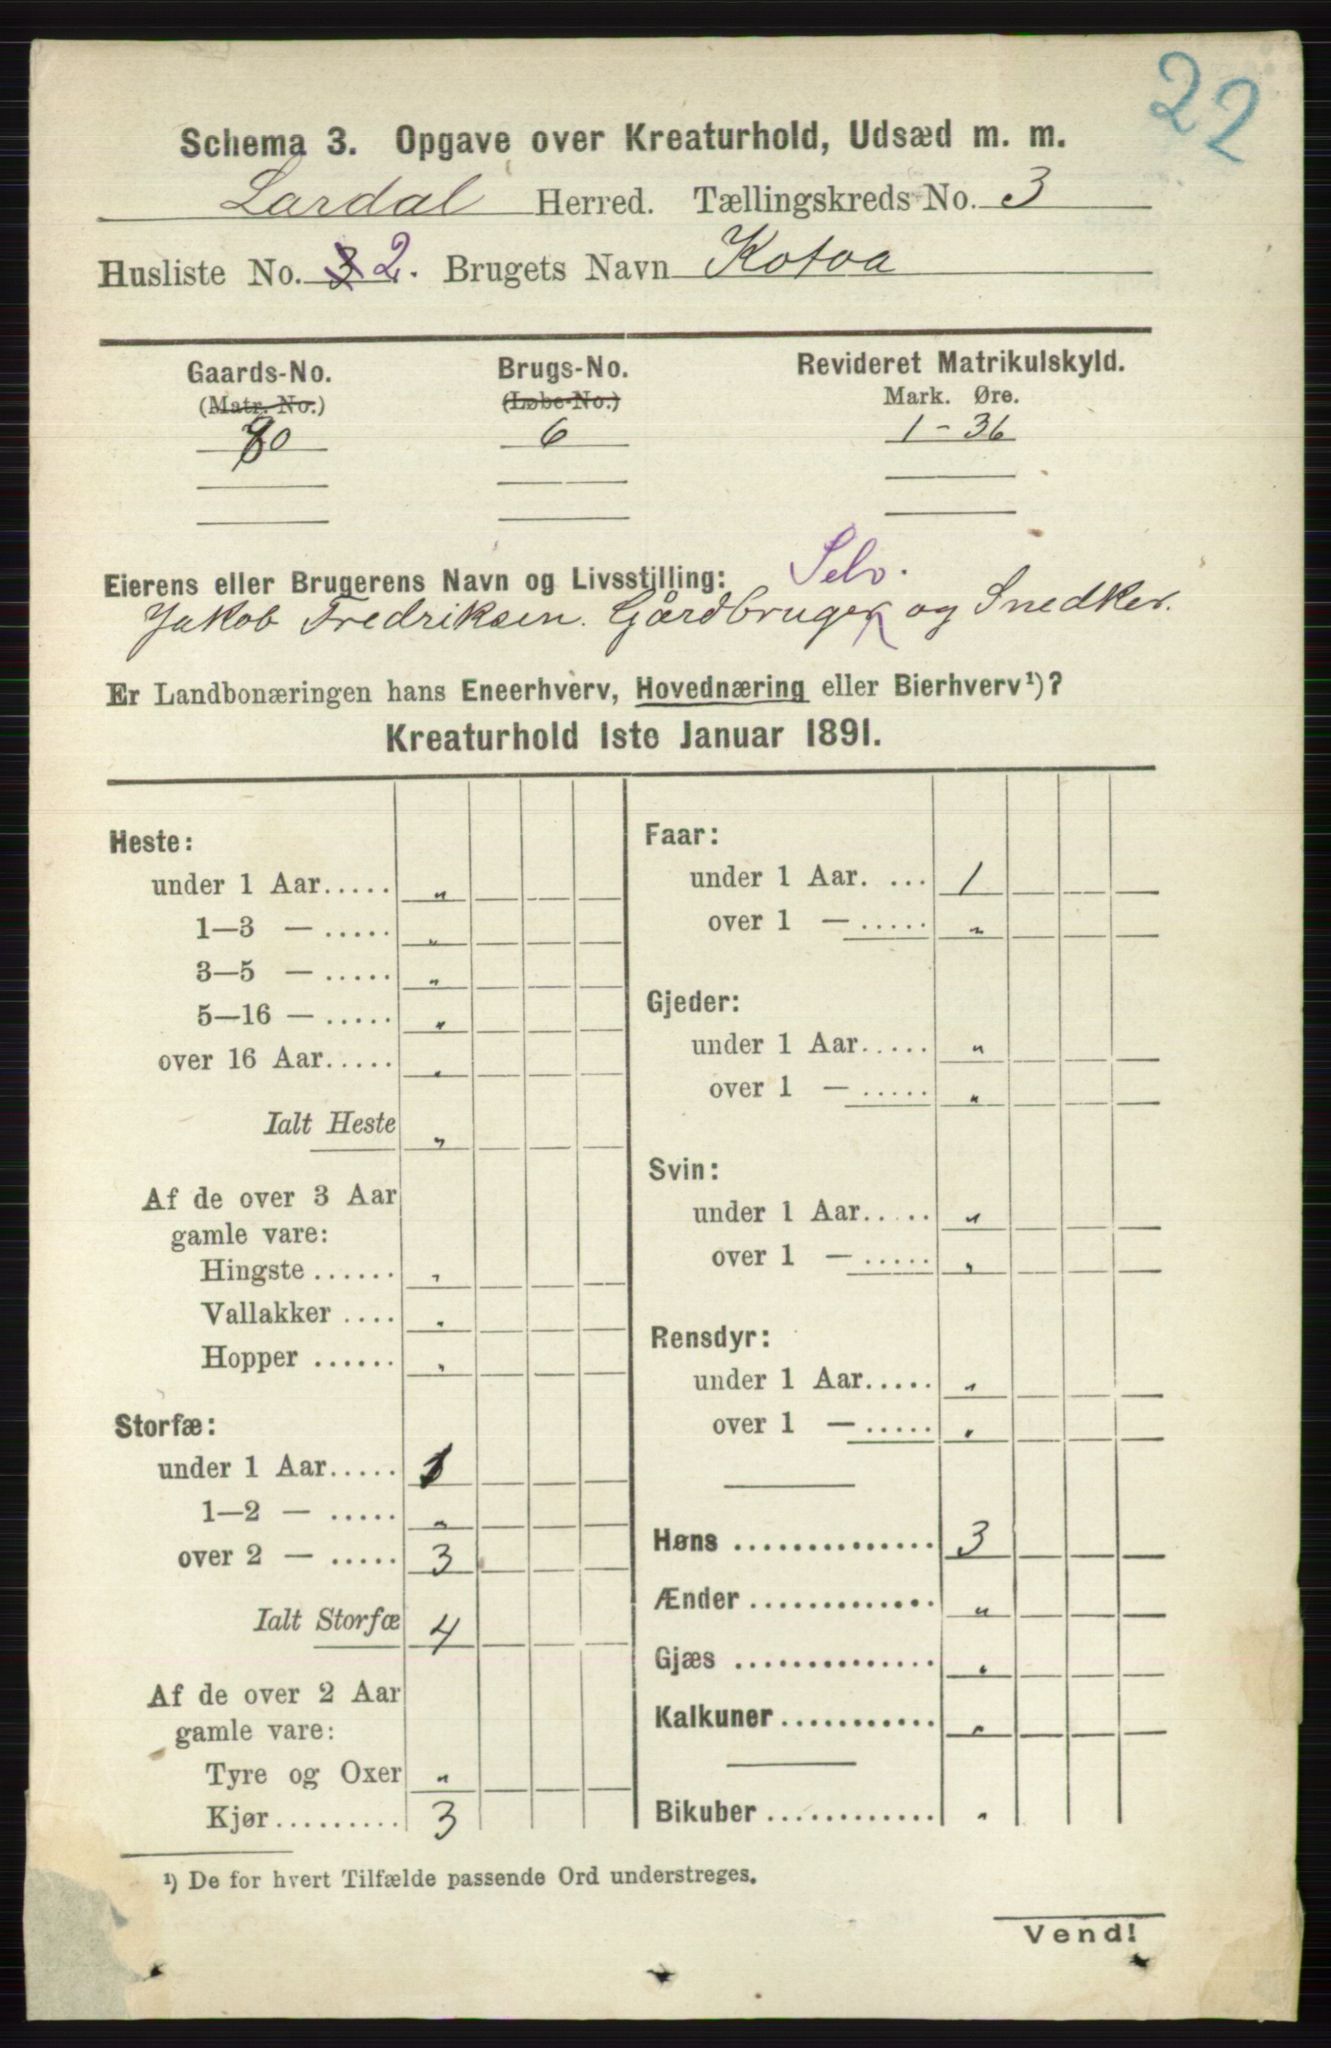 22
Schema 3. Opgave over Kreaturhold, Udsæd m. m.
Lardal Herred. Tællingskreds No. 3
Husliste No. 3 2. Brugets Navn Kotoa
Gaards-No. Brugs-No. Revideret Matrikulskyld.
(Matr. No.) (Løbe-No.) Mark. Øre.
80 6 1 - 36
Eierens eller Brugerens Navn og Livsstilling: Selv.
Jakob Fredriksen. Gårdbruger og Snedker.
Er Landbonæringen hans Eneerhverv, Hovednæring eller Bierhverv¹)?
Kreaturhold 1ste Januar 1891.
Heste:
under 1 Aar..... "
1—3 — ..... "
3—5 — ..... "
5—16 — ..... "
over 16 Aar..... "
Ialt Heste "
Af de over 3 Aar
gamle vare:
Hingste ...... "
Vallakker .... "
Hopper ...... "
Storfæ:
under 1 Aar..... 1
1—2 — ..... "
over 2 — ..... 3
Ialt Storfæ 4
Af de over 2 Aar
gamle vare:
Tyre og Oxer "
Kjør......... 3
Faar:
under 1 Aar. ... 1
over 1 — ..... "
Gjeder:
under 1 Aar..... "
over 1 — ..... "
Svin:
under 1 Aar..... "
over 1 — ..... "
Rensdyr:
under 1 Aar..... "
over 1 — ..... "
Høns .............. 3
Ænder ............. "
Gjæs .............. "
Kalkuner ........... "
Bikuber ............ "
¹) De for hvert Tilfælde passende Ord understreges.
Vend!